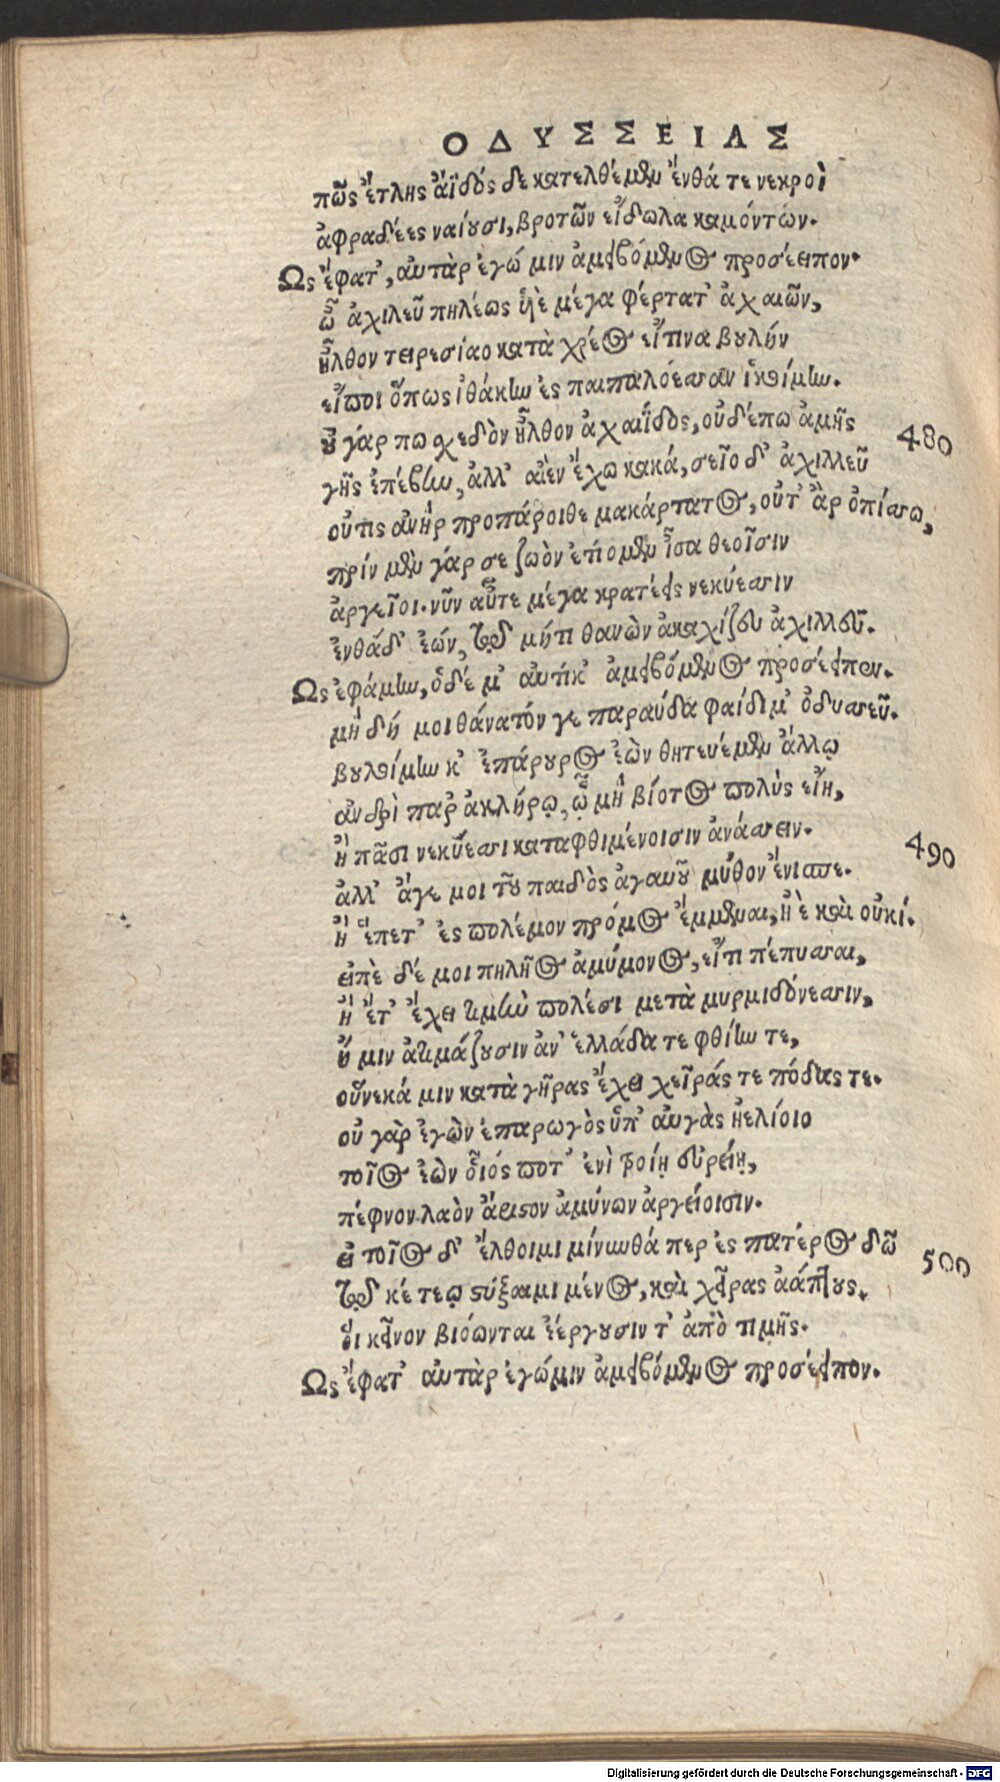 ΟΔΥΣΣΕΙΑΣ
πῶς ἔτλης ἄϊδός δε κατελθέμεν ἔνθά τε νεκροὶ
ἀφραδέες ναίουσι, βροτῶν εἴδωλα καμόντων.
Ως ἔφατ', αὐτὰρ ἐγώ μιν ἀμειβόμενος προσέειπον.
ὦ ἀχιλεῦ πηλέως ὑὲ μέγα φέρτατ' ἀχαιῶν,
ἦλθον τειρεσίαο κατὰ χρέος εἴτινα βουλὴν
εἴποι ὅπως ἰθάκην ἐς παιπαλόεσσαν ἱκοίμην.
οὐ γάρ πω σχεδὸν ἦλθον ἀχαιΐδος, οὐδέπω ἁμῆς
480
γῆς ἐπέβην, ἀλλ' αἰὲν ἔχω κακά, σεῖο δ' ἀχιλλεῦ
οὔτις ἀνὴρ προπάροιθε μακάρτατος, οὔτ' ἂρ ὀπίσσω,
πρίν μὲν γάρ σε ζωὸν ἐτίομεν ἶσα θεοῖσιν
ἀργεῖοι. νῦν αὖτε μέγα κρατέεις νεκύεσσιν
ἐνθάδ' ἐών, τῷ μήτι θανὼν ἀκαχίζευ ἀχιλλεῦ.
Ως ἐφάμην, ὁδέ μ' αὐτίκ' ἀμειβόμενος προσέειπεν.
μὴ δή μοι θάνατόν γε παραύδα φαίδιμ' ὀδυσσεῦ.
βουλοίμην κ' ἐπάρουρος ἐὼν θητευέμεν ἄλλῳ
ἀνδρὶ παρ' ἀκλήρῳ, ᾧ μὴ βίοτος πολὺς εἴη,
ἢ πᾶσι νεκύεσσι καταφθιμένοισιν ἀνάσσειν.
490
ἀλλ' ἄγε μοι τοῦ παιδὸς ἀγαυοῦ μύθον ἔνισπε.
ἢ ἕπετ' ἐς πολέμον πρόμος ἔμμεναι, ἠὲ καὶ οὐκί.
εἰπὲ δέ μοι πηλῆος ἀμύμονος, εἴτι πέπυσσαι,
ἢ ἔτ' ἔχει τιμὴν πολέσι μετὰ μυρμιδόνεσσιν,
ἤ μιν ἀτιμάζουσιν ἀν' ἑλλάδα τε φθίην τε,
οὕνεκά μιν κατὰ γῆρας ἔχει χεῖράς τε πόδας τε.
οὐ γὰρ ἐγὼν ἐπαρωγὸς ὑπ' αὐγὰς ἠελίοιο
τοῖος ἐὼν οἷός ποτ' ἐνὶ τροίῃ εὐρείῃ,
πέφνον λαὸν ἄριστον ἀμύνων ἀργείοισιν.
εἰ τοῖος δ' ἔλθοιμι μίνυνθά περ ἐς πατέρος δῶ
500
τῷ κέ τεῳ στύξαιμι μένος, καὶ χεῖρας ἀάπτους,
ὅι κεῖνον βιόωνται ἐέργουσιν τ' ἀπὸ τιμῆς.
Ως ἔφατ' αὐτὰρ ἐγώμιν ἀμειβόμενος προσέειπον.
Digitalisierung gefördert durch die Deutsche Forschungsgemeinschaft - DFG